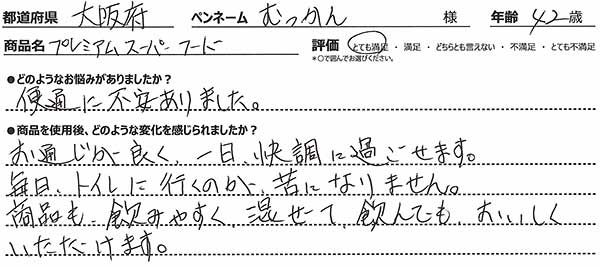 都道府県 大阪府 ペンネーム むっかん 様 年齢 42 歳
商品名 プレミアムスーパーフード 評価 とても満足 ・ 満足 ・ どちらとも言えない ・ 不満足 ・ とても不満足
*○で囲んでお選びください。
●どのようなお悩みがありましたか？
便通に不安ありました。
●商品を使用後、どのような変化を感じられましたか？
お通じが良く、一日、快調に過ごせます。
毎日、トイレに行くのが、苦になりません。
商品も、飲みやすく、混ぜて、飲んでも、おいしく
いただけます。